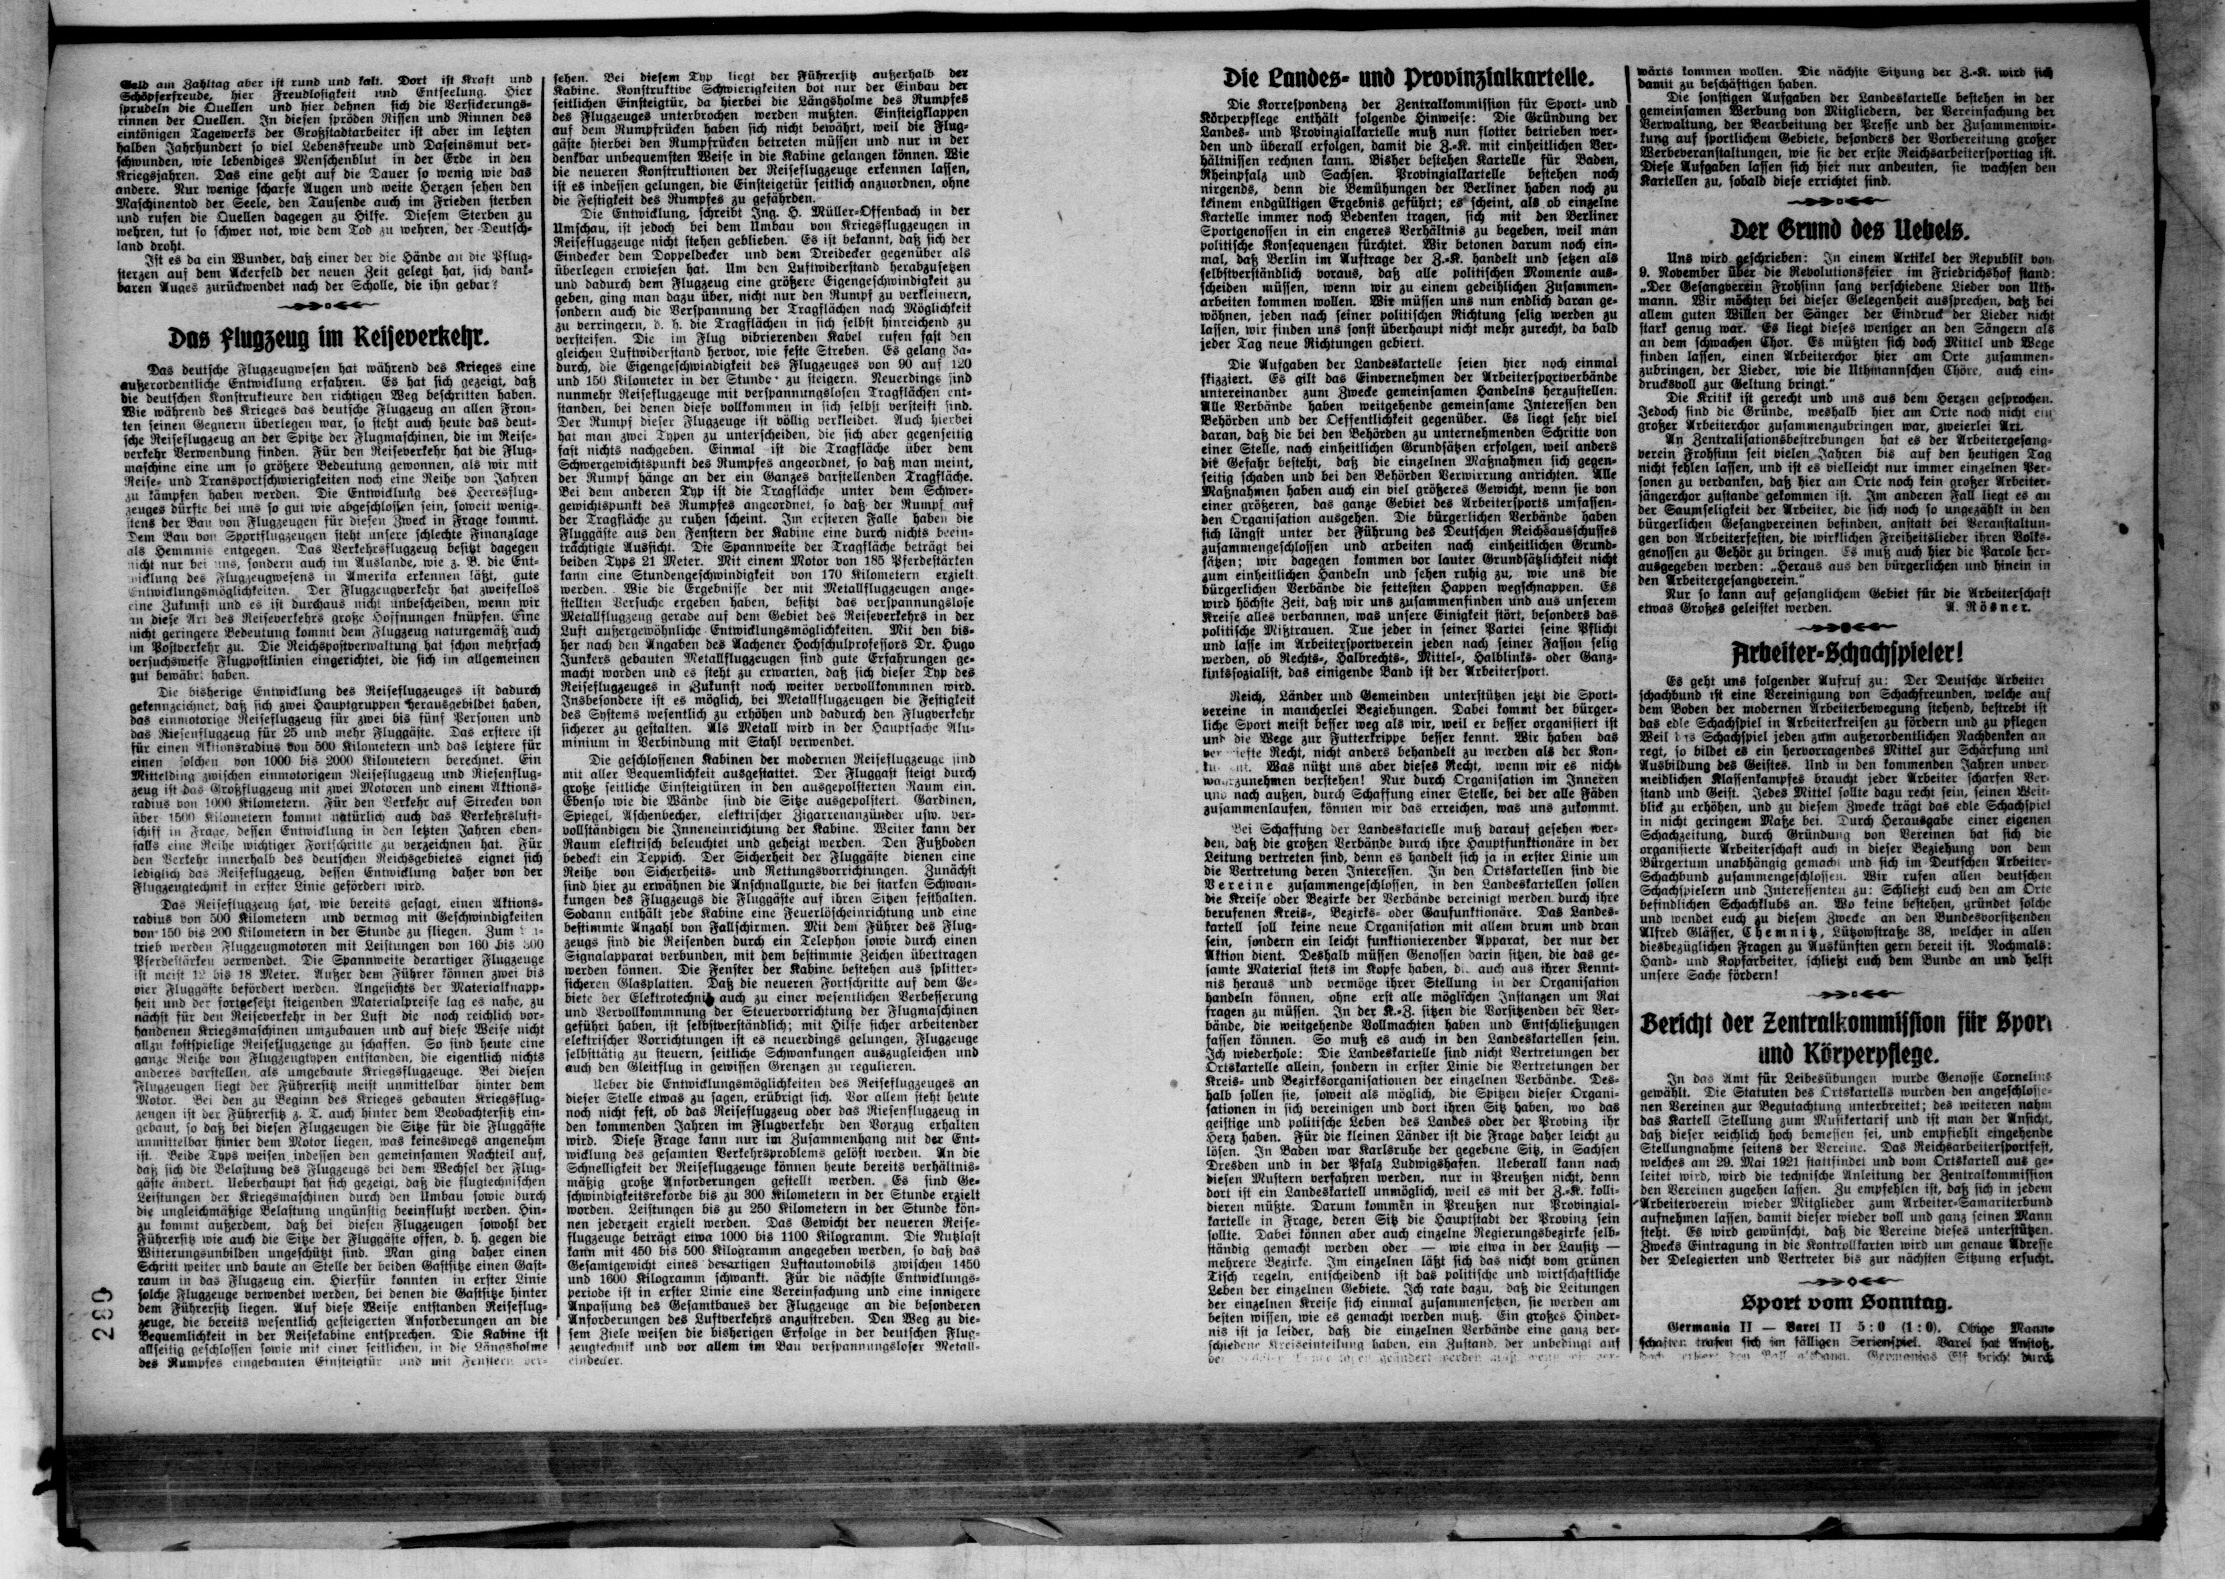 Geld am Zahltag aber ist rund und kalt. Dort ist Kraft und
Schöpferfreude, hier Freudlosigkeit und Entseelung. Hier
sprudeln die Quellen und hier dehnen sich die Versickerungs-
rinnen der Quellen. In diesen spröden Rissen und Rinnen des
eintönigen Tagewerks der Großstadtarbeiter ist aber im letzten
halben Jahrhundert so viel Lebensfreude und Daseinsmut ver-
schwunden, wie lebendiges Menschenblut in der Erde in den
Kriegsjahren. Das eine geht auf die Dauer so wenig wie das
andere. Nur wenige scharfe Augen und weite Herzen sehen den
Maschinentod der Seele, den Tausende auch im Frieden sterben
und rufen die Quellen dagegen zu Hilfe. Diesem Sterben zu
wehren, tut so schwer not, wie dem Tod zu wehren, der Deutsch-
land droht.
Ist es da ein Wunder, daß einer der die Hände an die Pflug-
sterzen auf dem Ackerfeld der neuen Zeit gelegt hat, sich dank-
baren Auges zurückwendet nach der Scholle, die ihn gebar?
Das Flugzeug im Reiseverkehr.
Das deutsche Flugzeugwesen hat während des Krieges eine
außerordentliche Entwicklung erfahren. Es hat sich gezeigt, daß
die deutschen Konstrukteure den richtigen Weg beschritten haben.
Wie während des Krieges das deutsche Flugzeug an allen Fron-
ten seinen Gegnern überlegen war, so steht auch heute das deut-
sche Reiseflugzeug an der Spitze der Flugmaschinen, die im Reise-
verkehr Verwendung finden. Für den Reiseverkehr hat die Flug-
maschine eine um so größere Bedeutung gewonnen, als wir mit
Reise- und Transportschwierigkeiten noch eine Reihe von Jahren
zu kämpfen haben werden. Die Entwicklung des Heeresflug-
zeuges dürfte bei uns so gut wie abgeschlossen sein, soweit wenig-
stens der Bau von Flugzeugen für diesen Zweck in Frage kommt.
Dem Bau von Sportflugzeugen steht unsere schlechte Finanzlage
als Hemmnis entgegen. Das Verkehrsflugzeug besitzt dagegen
nicht nur bei uns, sondern auch im Auslande, wie z. B. die Ent-
wicklung des Flugzeugwesens in Amerika erkennen läßt, gute
Entwicklungsmöglichkeiten. Der Flugzeugverkehr hat zweifellos
eine Zukunft und es ist durchaus nicht unbescheiden, wenn wir
an diese Art des Reiseverkehrs große Hoffnungen knüpfen. Eine
nicht geringere Bedeutung kommt dem Flugzeug naturgemäß auch
im Postverkehr zu. Die Reichspostverwaltung hat schon mehrfach
versuchsweise Flugpostlinien eingerichtet, die sich im allgemeinen
gut bewährt haben.
Die bisherige Entwicklung des Reiseflugzeuges ist dadurch
gekennzeichnet, daß sich zwei Hauptgruppen herausgebildet haben,
das einmotorige Reiseflugzeug für zwei bis fünf Personen und
das Riesenflugzeug für 25 und mehr Fluggäste. Das erstere ist
für einen Aktionsradius von 500 Kilometern und das letztere für
einen solchen von 1000 bis 2000 Kilometern berechnet. Ein
Mittelding zwischen einmotorigem Reiseflugzeug und Riesenflug-
zeug ist das Großflugzeug mit zwei Motoren und einem Aktions-
radius von 1000 Kilometern. Für den Verkehr auf Strecken von
über 1500 Kilometern kommt natürlich auch das Verkehrsluft-
schiff in Frage, dessen Entwicklung in den letzten Jahren eben-
falls eine Reihe wichtiger Fortschritte zu verzeichnen hat. Für
den Verkehr innerhalb des deutschen Reichsgebietes eignet sich
lediglich das Reiseflugzeug, dessen Entwicklung daher von der
Flugzeugtechnik in erster Linie gefördert wird.
Das Reiseflugzeug hat, wie bereits gesagt, einen Aktions-
radius von 500 Kilometern und vermag mit Geschwindigkeiten
von 150 bis 200 Kilometern in der Stunde zu fliegen. Zum
trieb werden Flugzeugmotoren mit Leistungen von 160 bis 300
Pferdestärken verwendet. Die Spannweite derartiger Flugzeuge
ist meist 12 bis 18 Meter. Außer dem Führer können zwei bis
vier Fluggäste befördert werden. Angesichts der Materialknapp-
heit und der fortgesetzt steigenden Materialpreise lag es nahe, zu
nächst für den Reiseverkehr in der Luft die noch reichlich vor-
handenen Kriegsmaschinen umzubauen und auf diese Weise nicht
allzu kostspielige Reiseflugzeuge zu schaffen. So sind heute eine
ganze Reihe von Flugzeugtypen entstanden, die eigentlich nichts
anderes darstellen, als umgebaute Kriegsflugzeuge. Bei diesen
Flugzeugen liegt der Führersitz meist unmittelbar hinter dem
Motor. Bei den zu Beginn des Krieges gebauten Kriegsflug-
zeugen ist der Führersitz z. T. auch hinter dem Beobachtersitz ein-
gebaut, so daß bei diesen Flugzeugen die Sitze für die Fluggäste
unmittelbar hinter dem Motor liegen, was keineswegs angenehm
ist. Beide Typs weisen indessen den gemeinsamen Nachteil auf,
daß sich die Belastung des Flugzeugs bei dem Wechsel der Flug-
gäste ändert. Ueberhaupt hat sich gezeigt, daß die flugtechnischen
Leistungen der Kriegsmaschinen durch den Umbau sowie durch
die ungleichmäßige Belastung ungünstig beeinflußt werden. Hin-
zu kommt außerdem, daß bei diesen Flugzeugen sowohl der
Führersitz wie auch die Sitze der Fluggäste offen, d. h. gegen die
Witterungsunbilden ungeschützt sind. Man ging daher einen
Schritt weiter und baute an Stelle der beiden Gastsitze einen Gast-
raum in das Flugzeug ein. Hierfür konnten in erster Linie
solche Flugzeuge verwendet werden, bei denen die Gastsitze hinter
dem Führersitz liegen. Auf diese Weise entstanden Reiseflug-
zeuge, die bereits wesentlich gesteigerten Anforderungen an die
Bequemlichkeit in der Reisekabine entsprechen. Die Kabine ist
allseitig geschlossen sowie mit einer seitlichen, in die Längsholme
des Rumpfes eingebauten Einsteigtür und mit Fenstern ver-
sehen. Bei diesem Typ liegt der Führersitz außerhalb der
Kabine. Konstruktive Schwierigkeiten bot nur der Einbau der
seitlichen Einsteigtür, da hierbei die Längsholme des Rumpfes
des Flugzeuges unterbrochen werden mußten. Einsteigklappen
auf dem Rumpfrücken haben sich nicht bewährt, weil die Flug-
gäste hierbei den Rumpfrücken betreten müssen und nur in der
denkbar unbequemsten Weise in die Kabine gelangen können. Wie
die neueren Konstruktionen der Reiseflugzeuge erkennen lassen,
ist es indessen gelungen, die Einsteigetür seitlich anzuordnen, ohne
die Festigkeit des Rumpfes zu gefährden.
Die Entwicklung, schreibt Ing. H. Müller-Offenbach in der
Umschau, ist jedoch bei dem Umbau von Kriegsflugzeugen in
Reiseflugzeuge nicht stehen geblieben. Es ist bekannt, daß sich der
Eindecker dem Doppeldecker und dem Dreidecker gegenüber als
überlegen erwiesen hat. Um den Luftwiderstand herabzusetzen
und dadurch dem Flugzeug eine größere Eigengeschwindigkeit zu
geben, ging man dazu über, nicht nur den Rumpf zu verkleinern,
sondern auch die Verspannung der Tragflächen nach Möglichkeit
zu verringern, d. h. die Tragflächen in sich selbst hinreichend zu
versteifen. Die im Flug vibrierenden Kabel rufen fast den
gleichen Luftwiderstand hervor, wie feste Streben. Es gelang da-
durch, die Eigengeschwindigkeit des Flugzeuges von 90 auf 120
und 150 Kilometer in der Stunde zu steigern. Neuerdings sind
nunmehr Reiseflugzeuge mit verspannungslosen Tragflächen ent-
standen, bei denen diese vollkommen in sich selbst versteift sind.
Der Rumpf dieser Flugzeuge ist völlig verkleidet. Auch hierbei
hat man zwei Typen zu unterscheiden, die sich aber gegenseitig
fast nichts nachgeben. Einmal ist die Tragfläche über dem
Schwergewichtspunkt des Rumpfes angeordnet, so daß man meint,
der Rumpf hänge an der ein Ganzes darstellenden Tragfläche.
Bei dem anderen Typ ist die Tragfläche unter dem Schwer-
gewichtspunkt des Rumpfes angeordnet, so daß der Rumpf auf
der Tragfläche zu ruhen scheint. Im ersteren Falle haben die
Fluggäste aus den Fenstern der Kabine eine durch nichts beein-
trächtigte Aussicht. Die Spannweite der Tragfläche beträgt bei
beiden Typs 21 Meter. Mit einem Motor von 185 Pferdestärken
kann eine Stundengeschwindigkeit von 170 Kilometern erzielt
werden. Wie die Ergebnisse der mit Metallflugzeugen ange-
stellten Versuche ergeben haben, besitzt das verspannungslose
Metallflugzeug gerade auf dem Gebiet des Reiseverkehrs in der
Luft außergewöhnliche Entwicklungsmöglichkeiten. Mit den bis-
her nach den Angaben des Aachener Hochschulprofessors Dr. Hugo
Junkers gebauten Metallflugzeugen sind gute Erfahrungen ge-
macht worden und es steht zu erwarten, daß sich dieser Typ des
Reiseflugzeuges in Zukunft noch weiter vervollkommnen wird.
Insbesondere ist es möglich, bei Metallflugzeugen die Festigkeit
des Systems wesentlich zu erhöhen und dadurch den Flugverkehr
sicherer zu gestalten. Als Metall wird in der Hauptsache Alu-
minium in Verbindung mit Stahl verwendet.
Die geschlossenen Kabinen der modernen Reiseflugzeuge sind
mit aller Bequemlichkeit ausgestattet. Der Fluggast steigt durch
große seitliche Einsteigtüren in den ausgepolsterten Raum ein.
Ebenso wie die Wände sind die Sitze ausgepolstert. Gardinen,
Spiegel, Aschenbecher, elektrischer Zigarrenanzünder usw. ver-
vollständigen die Inneneinrichtung der Kabine. Weiter kann der
Raum elektrisch beleuchtet und geheizt werden. Den Fußboden
bedeckt ein Teppich. Der Sicherheit der Fluggäste dienen eine
Reihe von Sicherheits- und Rettungsvorrichtungen. Zunächst
sind hier zu erwähnen die Anschnallgurte, die bei starken Schwan-
kungen des Flugzeugs die Fluggäste auf ihren Sitzen festhalten.
Sodann enthält jede Kabine eine Feuerlöscheinrichtung und eine
bestimmte Anzahl von Fallschirmen. Mit dem Führer des Flug-
zeugs sind die Reisenden durch ein Telephon sowie durch einen
Signalapparat verbunden, mit dem bestimmte Zeichen übertragen
werden können. Die Fenster der Kabine bestehen aus splitter-
sicheren Glasplatten. Daß die neueren Fortschritte auf dem Ge-
biete der Elektrotechnik auch zu einer wesentlichen Verbesserung
und Vervollkommnung der Steuervorrichtung der Flugmaschinen
geführt haben, ist selbstverständlich; mit Hilfe sicher arbeitender
elektrischer Vorrichtungen ist es neuerdings gelungen, Flugzeuge
selbsttätig zu steuern, seitliche Schwankungen auszugleichen und
auch den Gleitflug in gewissen Grenzen zu regulieren.
Ueber die Entwicklungsmöglichkeiten des Reiseflugzeuges an
dieser Stelle etwas zu sagen, erübrigt sich. Vor allem steht heute
noch nicht fest, ob das Reiseflugzeug oder das Riesenflugzeug in
den kommenden Jahren im Flugverkehr den Vorzug erhalten
wird. Diese Frage kann nur im Zusammenhang mit der Ent-
wicklung des gesamten Verkehrsproblems gelöst werden. An die
Schnelligkeit der Reiseflugzeuge können heute bereits verhältnis-
mäßig große Anforderungen gestellt werden. Es sind Ge-
schwindigkeitsrekorde bis zu 300 Kilometern in der Stunde erzielt
worden. Leistungen bis zu 250 Kilometern in der Stunde kön-
nen jederzeit erzielt werden. Das Gewicht der neueren Reise-
flugzeuge beträgt etwa 1000 bis 1100 Kilogramm. Die Nutzlast
kann mit 450 bis 500 Kilogramm angegeben werden, so daß das
Gesamtgewicht eines derartigen Luftautomobils zwischen 1450
und 1600 Kilogramm schwankt. Für die nächste Entwicklungs-
periode ist in erster Linie eine Vereinfachung und eine innigere
Anpassung des Gesamtbaues der Flugzeuge an die besonderen
Anforderungen des Luftverkehrs anzustreben. Den Weg zu die-
sem Ziele weisen die bisherigen Erfolge in der deutschen Flug-
zeugtechnik und vor allem im Bau verspannungsloser Metall-
eindecker.
Die Landes- und Provinzialkartelle.
Die Korrespondenz der Zentralkommission für Sport- und
Körperpflege enthält folgende Hinweise: Die Gründung der
Landes- und Provinzialkartelle muß nun flotter betrieben wer-
den und überall erfolgen, damit die Z.-K. mit einheitlichen Ver-
hältnissen rechnen kann. Bisher bestehen Kartelle für Baden,
Rheinpfalz und Sachsen. Provinzialkartelle bestehen noch
nirgends, denn die Bemühungen der Berliner haben noch zu
keinem endgültigen Ergebnis geführt; es scheint, als ob einzelne
Kartelle immer noch Bedenken tragen, sich mit den Berliner
Sportgenossen in ein engeres Verhältnis zu begeben, weil man
politische Konsequenzen fürchtet. Wir betonen darum noch ein-
mal, daß Berlin im Auftrage der Z.-K. handelt und setzen als
selbstverständlich voraus, daß alle politischen Momente aus-
scheiden müssen, wenn wir zu einem gedeihlichen Zusammen-
arbeiten kommen wollen. Wir müssen uns nun endlich daran ge-
wöhnen, jeden nach seiner politischen Richtung selig werden zu
lassen, wir finden uns sonst überhaupt nicht mehr zurecht, da bald
jeder Tag neue Richtungen gebiert.
Die Aufgaben der Landeskartelle seien hier noch einmal
skizziert. Es gilt das Einvernehmen der Arbeitersportverbände
untereinander zum Zwecke gemeinsamen Handelns herzustellen.
Alle Verbände haben weitgehende gemeinsame Interessen den
Behörden und der Oeffentlichkeit gegenüber. Es liegt sehr viel
daran, daß die bei den Behörden zu unternehmenden Schritte von
einer Stelle, nach einheitlichen Grundsätzen erfolgen, weil anders
die Gefahr besteht, daß die einzelnen Maßnahmen sich gegen-
seitig schaden und bei den Behörden Verwirrung anrichten. Alle
Maßnahmen haben auch ein viel größeres Gewicht, wenn sie von
einer größeren, das ganze Gebiet des Arbeitersports umfassen-
den Organisation ausgehen. Die bürgerlichen Verbände haben
sich längst unter der Führung des Deutschen Reichsausschusses
zusammengeschlossen und arbeiten nach einheitlichen Grund-
sätzen; wir dagegen kommen vor lauter Grundsätzlichkeit nicht
zum einheitlichen Handeln und sehen ruhig zu, wie uns die
bürgerlichen Verbände die fettesten Happen wegschnappen. Es
wird höchste Zeit, daß wir uns zusammenfinden und aus unserem
Kreise alles verbannen, was unsere Einigkeit stört, besonders das
politische Mißtrauen. Tue jeder in seiner Partei seine Pflicht
und lasse im Arbeitersportverein jeden nach seiner Fasson selig
werden, ob Rechts-, Halbrechts-, Mittel-, Halblinks- oder Ganz-
linkssozialist, das einigende Band ist der Arbeitersport.
Reich, Länder und Gemeinden unterstützen jetzt die Sport-
vereine in mancherlei Beziehungen. Dabei kommt der bürger-
liche Sport meist besser weg als wir, weil er besser organisiert ist
und die Wege zur Futterkrippe besser kennt. Wir haben das
Recht, nicht anders behandelt zu werden als der Kon-
Was nützt uns aber dieses Recht, wenn wir es nicht
wahrzunehmen verstehen! Nur durch Organisation im Inneren
und nach außen, durch Schaffung einer Stelle, bei der alle Fäden
zusammenlaufen, können wir das erreichen, was uns zukommt.
Bei Schaffung der Landeskartelle muß darauf gesehen wer-
den, daß die großen Verbände durch ihre Hauptfunktionäre in der
Leitung vertreten sind, denn es handelt sich ja in erster Linie um
die Vertretung deren Interessen. In den Ortskartellen sind die
Vereine zusammengeschlossen, in den Landeskartellen sollen
die Kreise oder Bezirke der Verbände vereinigt werden durch ihre
berufenen Kreis-, Bezirks- oder Gaufunktionäre. Das Landes-
kartell soll keine neue Organisation mit allem drum und dran
sein, sondern ein leicht funktionierender Apparat, der nur der
Aktion dient. Deshalb müssen Genossen darin sitzen, die das ge-
samte Material stets im Kopfe haben, die auch aus ihrer Kennt-
nis heraus und vermöge ihrer Stellung in der Organisation
handeln können, ohne erst alle möglichen Instanzen um Rat
fragen zu müssen. In der K.-Z. sitzen die Vorsitzenden der Ver-
bände, die weitgehende Vollmachten haben und Entschließungen
fassen können. So muß es auch in den Landeskartellen sein.
Ich wiederhole: Die Landeskartelle sind nicht Vertretungen der
Ortskartelle allein, sondern in erster Linie die Vertretungen der
Kreis- und Bezirksorganisationen der einzelnen Verbände. Des-
halb sollen sie, soweit als möglich, die Spitzen dieser Organi-
sationen in sich vereinigen und dort ihren Sitz haben, wo das
geistige und politische Leben des Landes oder der Provinz ihr
Herz haben. Für die kleinen Länder ist die Frage daher leicht zu
lösen. In Baden war Karlsruhe der gegebene Sitz, in Sachsen
Dresden und in der Pfalz Ludwigshafen. Ueberall kann nach
diesen Mustern verfahren werden, nur in Preußen nicht, denn
dort ist ein Landeskartell unmöglich, weil es mit der Z.-K. kolli-
dieren müßte. Darum kommen in Preußen nur Provinzial-
kartelle in Frage, deren Sitz die Hauptstadt der Provinz sein
sollte. Dabei können aber auch einzelne Regierungsbezirke selb-
ständig gemacht werden oder — wie etwa in der Lausitz —
mehrere Bezirke. Im einzelnen läßt sich das nicht vom grünen
Tisch regeln, entscheidend ist das politische und wirtschaftliche
Leben der einzelnen Gebiete. Ich rate dazu, daß die Leitungen
der einzelnen Kreise sich einmal zusammensetzen, sie werden am
besten wissen, wie es gemacht werden muß. Ein großes Hinder-
nis ist ja leider, daß die einzelnen Verbände eine ganz ver-
schiedene Kreiseinteilung haben, ein Zustand, der unbedingt auf
geändert werden muß
wärts kommen wollen. Die nächste Sitzung der Z.-K. wird sich
damit zu beschäftigen haben.
Die sonstigen Aufgaben der Landeskartelle bestehen in der
gemeinsamen Werbung von Mitgliedern, der Vereinfachung der
Verwaltung, der Bearbeitung der Presse und der Zusammenwir-
kung auf sportlichem Gebiete, besonders der Vorbereitung großer
Werbeveranstaltungen, wie sie der erste Reichsarbeitersporttag ist.
Diese Aufgaben lassen sich hier nur andeuten, sie wachsen den
Kartellen zu, sobald diese errichtet sind.
Der Grund des Uebels.
Uns wird geschrieben: In einem Artikel der Republik von
9. November über die Revolutionsfeier im Friedrichshof stand:
„Der Gesangverein Frohsinn sang verschiedene Lieder von Uth-
mann. Wir möchten bei dieser Gelegenheit aussprechen, daß bei
allem guten Willen der Sänger der Eindruck der Lieder nicht
stark genug war. Es liegt dieses weniger an den Sängern als
an dem schwachen Chor. Es müßten sich doch Mittel und Wege
finden lassen, einen Arbeiterchor hier am Orte zusammen-
zubringen, der Lieder, wie die Uthmannschen Chöre, auch ein-
drucksvoll zur Geltung bringt.“
Die Kritik ist gerecht und uns aus dem Herzen gesprochen.
Jedoch sind die Gründe, weshalb hier am Orte noch nicht ein
großer Arbeiterchor zusammenzubringen war, zweierlei Art.
An Zentralisationsbestrebungen hat es der Arbeitergesang-
verein Frohsinn seit vielen Jahren bis auf den heutigen Tag
nicht fehlen lassen, und ist es vielleicht nur immer einzelnen Per-
sonen zu verdanken, daß hier am Orte noch kein großer Arbeiter-
sängerchor zustande gekommen ist. Im anderen Fall liegt es an
der Saumseligkeit der Arbeiter, die sich noch so ungezählt in den
bürgerlichen Gesangvereinen befinden, anstatt bei Veranstaltun-
gen von Arbeiterfesten, die wirklichen Freiheitslieder ihren Volks-
genossen zu Gehör zu bringen. Es muß auch hier die Parole her-
ausgegeben werden: „Heraus aus den bürgerlichen und hinein in
den Arbeitergesangverein.“
Nur so kann auf gesanglichem Gebiet für die Arbeiterschaft
etwas Großes geleistet werden. A. Rösner.
Arbeiter-Schachspieler!
Es geht uns folgender Aufruf zu: Der Deutsche Arbeiter
schachbund ist eine Vereinigung von Schachfreunden, welche auf
dem Boden der modernen Arbeiterbewegung stehend, bestrebt ist
das edle Schachspiel in Arbeiterkreisen zu fördern und zu pflegen
Weil das Schachspiel jeden zum außerordentlichen Nachdenken an
regt, so bildet es ein hervorragendes Mittel zur Schärfung und
Ausbildung des Geistes. Und in den kommenden Jahren unver
meidlichen Klassenkampfes braucht jeder Arbeiter scharfen Ver-
stand und Geist. Jedes Mittel sollte dazu recht sein, seinen Weit-
blick zu erhöhen, und zu diesem Zwecke trägt das edle Schachspiel
in nicht geringem Maße bei. Durch Herausgabe einer eigenen
Schachzeitung, durch Gründung von Vereinen hat sich die
organisierte Arbeiterschaft auch in dieser Beziehung von dem
Bürgertum unabhängig gemacht und sich im Deutschen Arbeiter-
Schachbund zusammengeschlossen. Wir rufen allen deutschen
Schachspielern und Interessenten zu: Schließt euch den am Orte
befindlichen Schachklubs an. Wo keine bestehen, gründet solche
und wendet euch zu diesem Zwecke an den Bundesvorsitzenden
Alfred Gläser, Chemnitz, Lützowstraße 38, welcher in allen
diesbezüglichen Fragen zu Auskünften gern bereit ist. Nochmals:
Hand- und Kopfarbeiter, schließt euch dem Bunde an und helft
unsere Sache fördern!
Bericht der Zentralkommission für Spor
und Körperpflege.
In das Amt für Leibesübungen wurde Genosse Cornelius
gewählt. Die Statuten des Ortskartells wurden den angeschlosse-
nen Vereinen zur Begutachtung unterbreitet; des weiteren nahm
das Kartell Stellung zum Musikertarif und ist man der Ansicht,
daß dieser reichlich hoch bemessen sei, und empfiehlt eingehende
Stellungnahme seitens der Vereine. Das Reichsarbeitersportfest,
welches am 29. Mai 1921 stattfindet und vom Ortskartell aus ge-
leitet wird, wird die technische Anleitung der Zentralkommission
den Vereinen zugehen lassen. Zu empfehlen ist, daß sich in jedem
Arbeiterverein wieder Mitglieder zum Arbeiter-Samariterbund
aufnehmen lassen, damit dieser wieder voll und ganz seinen Mann
steht. Es wird gewünscht, daß die Vereine dieses unterstützen.
Zwecks Eintragung in die Kontrollkarten wird um genaue Adresse
der Delegierten und Vertreter bis zur nächsten Sitzung ersucht.
Sport vom Sonntag.
Germania II — Varel II 5:0 (1:0). Obige Mann-
schaften trafen sich im fälligen Serienspiel. Varel hat Anstoß,
Germanias Elf bricht durch